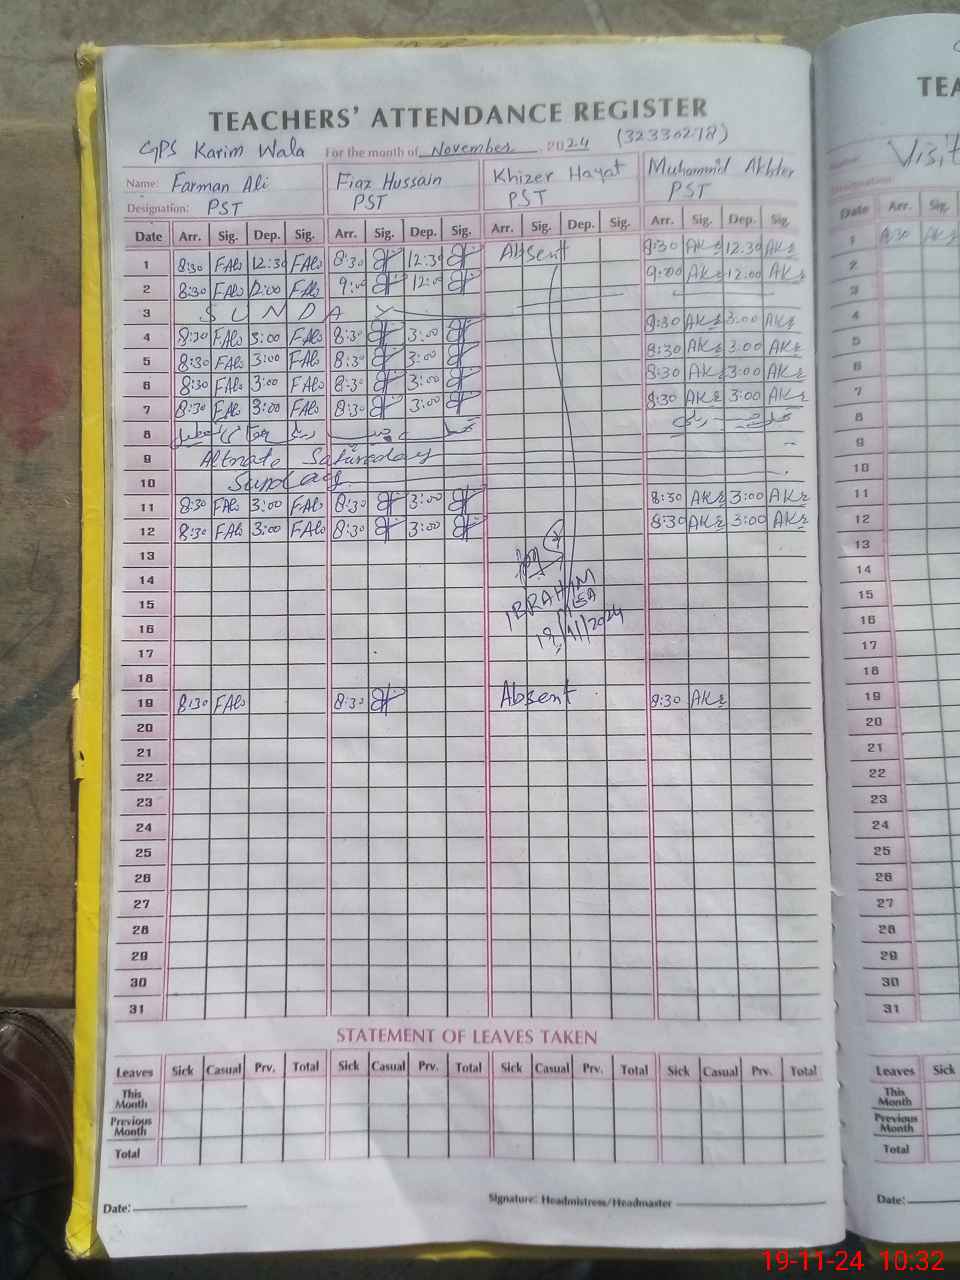 TEACHERS' ATTENDANCE REGISTER
GPS Karim Wala For the month of November 2024 (32330278)
Name: Farman Ali Fiaz Hussain Khizer Hayat Muhammid Akhter
Designation: PST PST PST PST
Date Arr. Sig. Dep. Sig. Arr. Sig. Dep. Sig. Arr. Sig. Dep. Sig. Arr. Sig. Dep. Sig.
1 8:30 FAli 12:30 FAli 8:30 12:30 Absent 8:30 AKr 12:30 AKr
2 8:30 FAli 12:00 FAli 9:00 12:00 9:00 AKr 12:00 AKr
3 S U N D A Y
4 8:30 FAli 3:00 FAli 8:30 3:00 8:30 AKr 3:00 AKr
5 8:30 FAli 3:00 FAli 8:30 3:00 8:30 AKr 3:00 AKr
6 8:30 FAli 3:00 FAli 8:30 3:00 8:30 AKr 3:00 AKr
7 8:30 FAli 3:00 FAli 8:30 3:00 8:30 AKr 3:00 AKr
8
9 Altnate Saturday
10 Sunday
11 8:30 FAli 3:00 FAli 8:30 3:00 8:30 AKr 3:00 AKr
12 8:30 FAli 3:00 FAli 8:30 3:00 8:30 AKr 3:00 AKr
13
14
IBRAHIM
15
16
19/11/2024
17
18
19 8:30 FAli 8:30 Absent 8:30 AKr
20
21
22
23
24
25
26
27
28
29
30
31
STATEMENT OF LEAVES TAKEN
Leaves Sick Casual Prv. Total Sick Casual Prv. Total Sick Casual Prv. Total Sick Casual Prv. Total
This Month
Previous Month
Total
Date: Signature: Headmistress/Headmaster
TEA
Visit
Date Arr. Sig.
1 8:30 AKr
2
3
4
5
6
7
8
9
10
11
12
13
14
15
16
17
18
19
20
21
22
23
24
25
26
27
28
29
30
31
Leaves Sick
This Month
Previous Month
Total
Date:
19-11-24 10:32